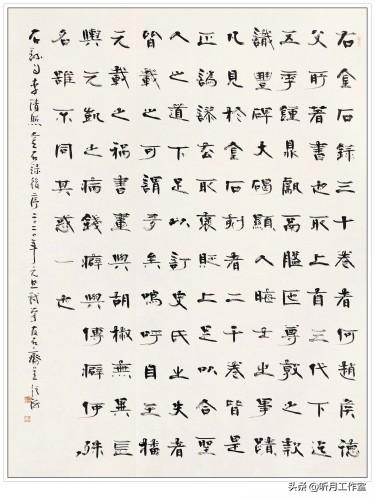 右金石錄三十卷者何趙侯德
父所著書也取上自三代下迄
五季鐘鼎甗鬲盤匜尊敦之款
識豐碑大碣顯人晦士之事蹟
凡見於金石刻者二千卷皆是
正譌謬去取褒貶上足以合聖
人之道下足以訂史氏之失者
皆載之可謂多矣嗚呼自王播
元載之禍書畫與胡椒無異長
輿元凱之病錢癖與傳癖何殊
名雖不同其惑一也
右錄句李清照金石錄後序二〇二〇年元旦
头条 @听月工作室